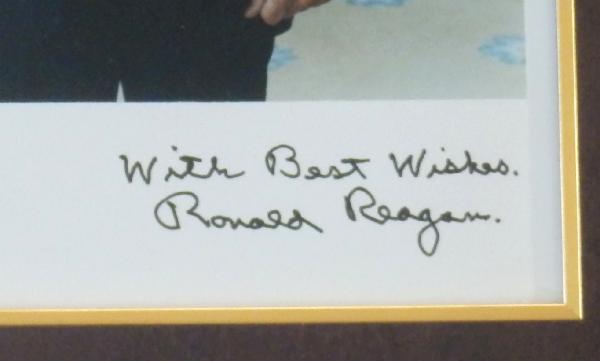 With Best Wishes.
Ronald Reagan.